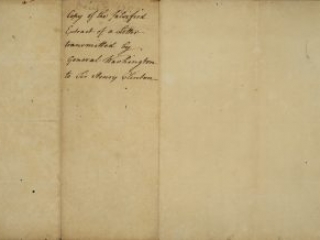 Copy of the falsified
Extract of a Letter
transmitted by
General Washington
to Sir Henry Clinton